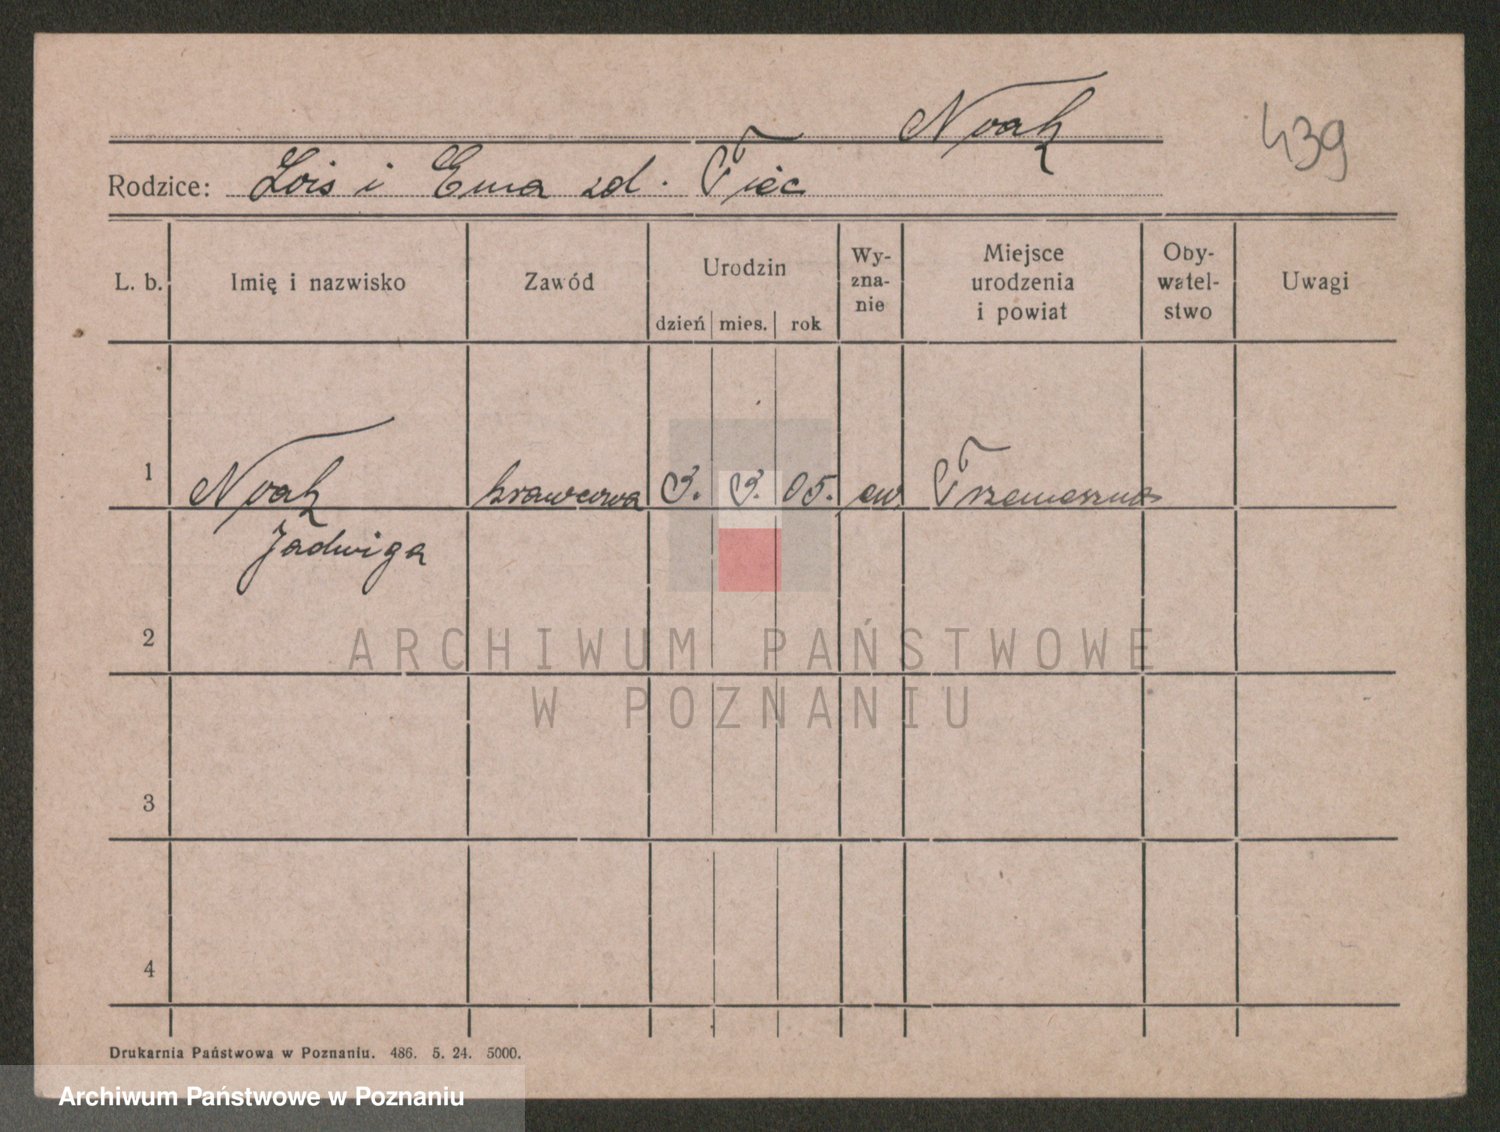 Noak
439
Rodzice: Lois i Ema zd. Tiec
L. b.
Imię i nazwisko
Zawód
Urodzin
dzień mies. rok
Wy-
zna-
nie
Miejsce
urodzenia
i powiat
Oby-
watel-
stwo
Uwagi
1 Noak krawcowa 3. 3. 05. ew. Trzemeszno
Jadwiga
2
ARCHIWUM PAŃSTWOWE
W POZNANIU
3
4
Drukarnia Państwowa w Poznaniu. 486. 5. 24. 5000.
Archiwum Państwowe w Poznaniu